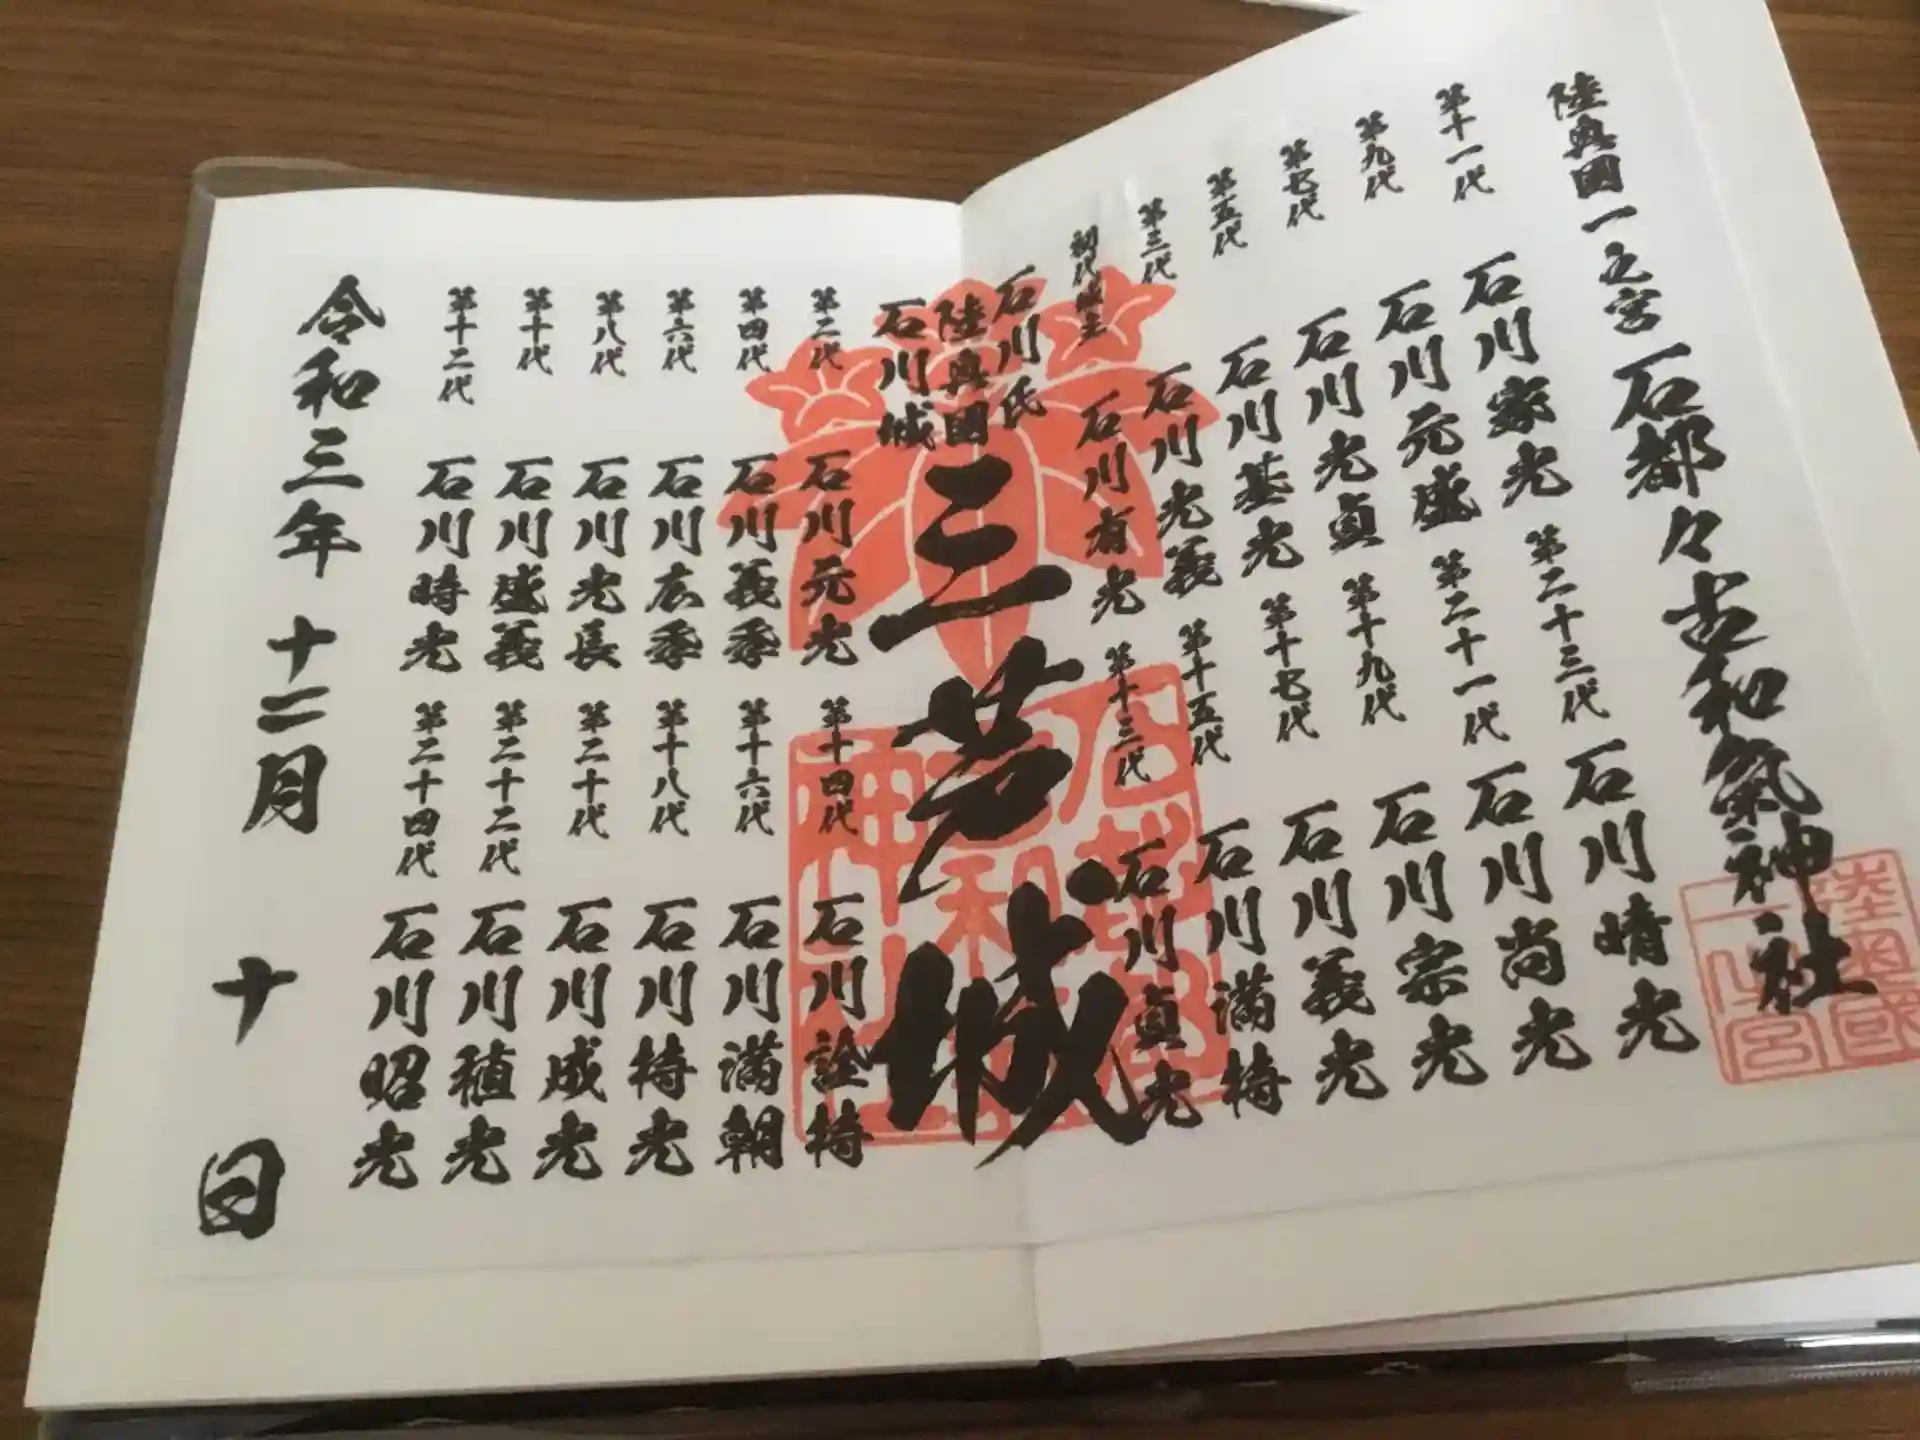 陸奥國一之宮 石都々古和氣神社
第十一代 石川家光
第二十三代 石川晴光
第九代 石川元盛
第二十一代 石川尚光
第七代 石川光貞
第十九代 石川宗光
第五代 石川基光
第十七代 石川義光
第三代 石川光義
第十五代 石川満持
初代城主 石川有光
第十三代 石川貞光
石川氏
陸奥國
三芦城
石川城
第二代 石川元光
第十四代 石川詮持
第四代 石川義季
第十六代 石川満朝
第六代 石川広季
第十八代 石川持光
第八代 石川光長
第二十代 石川成光
第十代 石川盛義
第二十二代 石川稙光
第十二代 石川時光
第二十四代 石川昭光
令和三年 十二月 十日
陸奥國
一之宮